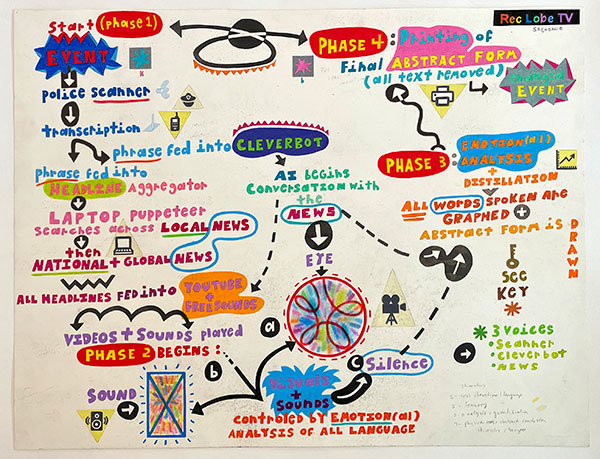 Rec Lobe TV
SEQUENCE
Start (phase 1)
EVENT
police scanner
transcription
phrase fed into
CLEVERBOT
phrase fed into
HEADLINE Aggregator
LAPTOP puppeteer
searches across LOCAL NEWS
then
NATIONAL + GLOBAL NEWS
ALL HEADLINES FED into
YOUTUBE
+
FREESOUNDS
VIDEOS + SOUNDS played
PHASE 2 BEGINS :
AI BEGINS
CONVERSATION WITH
the
NEWS
EYE
a
b
c
SOUND
Visuals
+
SOUNDS
Silence
controled by EMOTION(al)
ANALYSIS OF ALL LANGUAGE
PHASE 3 :
EMOTION(al)
ANALYSIS
+
DISTILLATION
ALL WORDS SPOKEN ARE
GRAPHED +
ABSTRACT FORM IS DRAWN
SEE
KEY
3 VOICES
Scanner
Cleverbot
NEWS
PHASE 4 : Printing of
Final ABSTRACT FORM
(all text removed)
EVENT